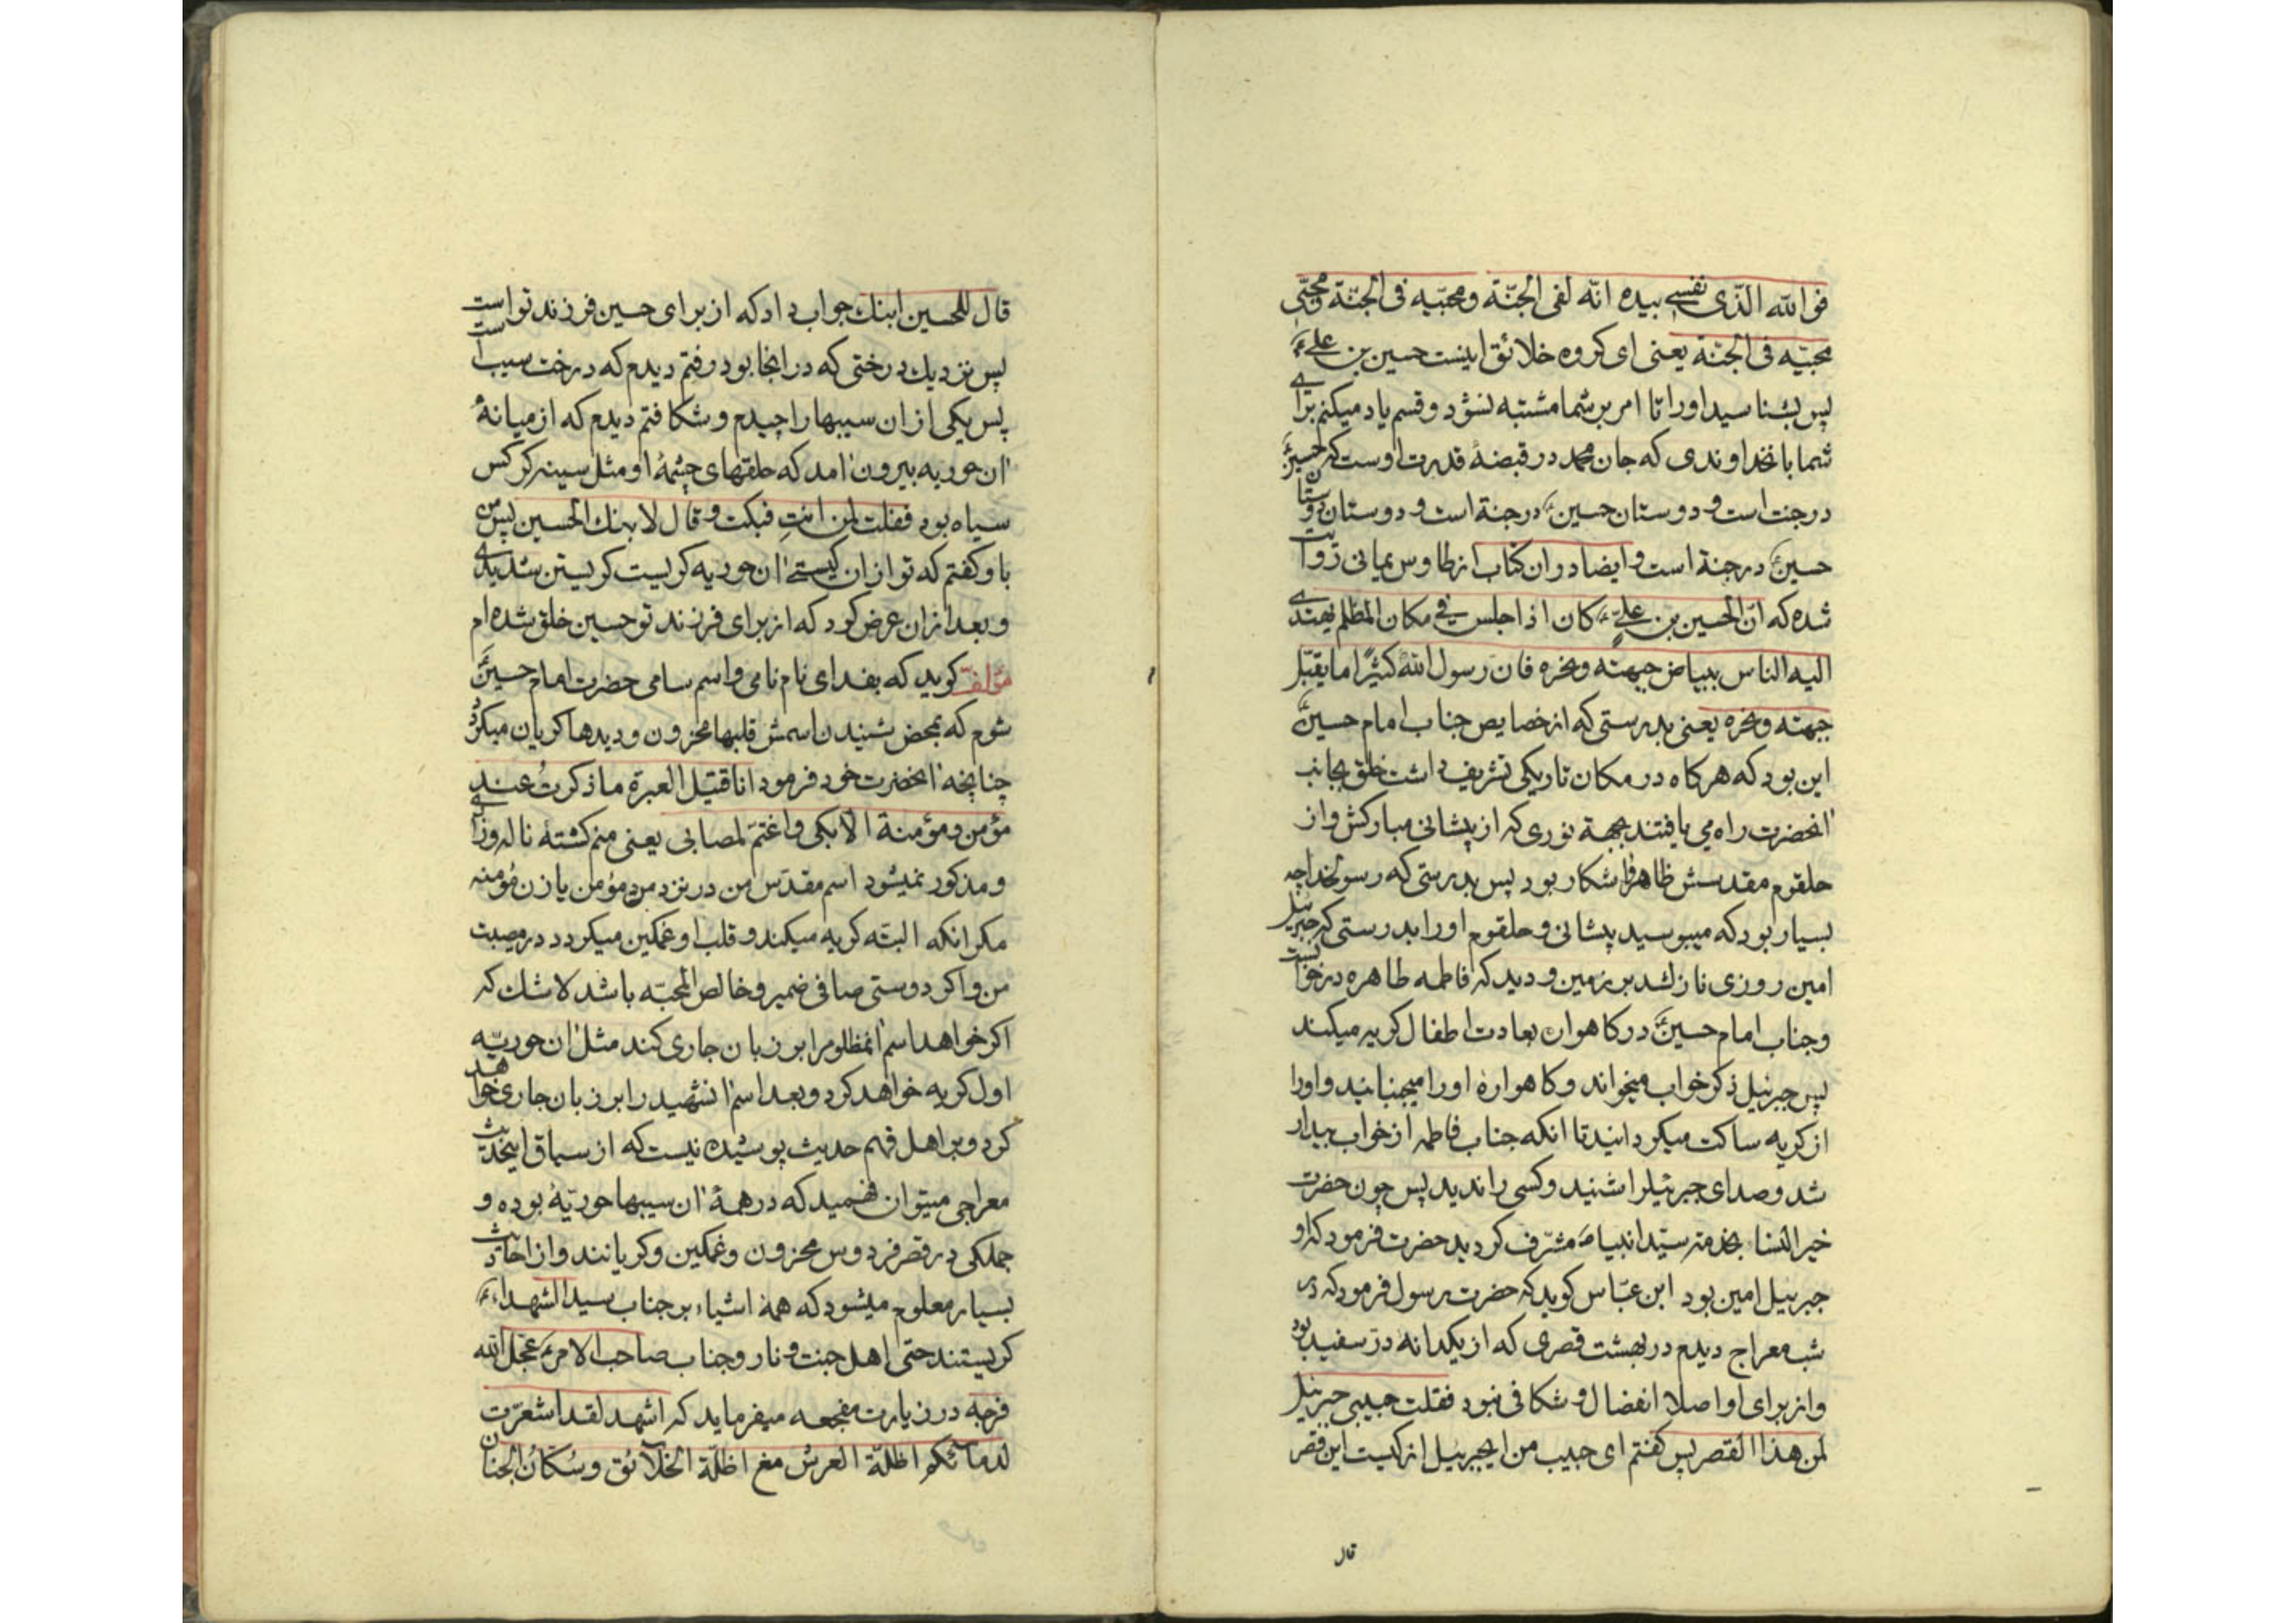 فو اللّه الذّی نفسی بیده انّه لفی الجنّة ومحبّیه فی الجنّة ومحبّی
محبّیه فی الجنّة یعنی ای کروه خلائق اینست حسین بن علی ع
پس بشناسید اورا تا امر بر شما مشتبه نشود و قسم یاد میکنم برای
شما بانخداوندی که جان محمد در قبضهٔ قدرت اوست که حسین ع
در جنت است و دوستان حسین ع در جنة است و دوستان دوستان
حسین ع در جنة است و ایضا در ان کتاب از طاوس یمانی روایت
شده که انّ الحسین بن علی ع کان اذا جلس فی مکان المظلم یهتدی
الیه الناس ببیاض جبهته ونحره فان رسول اللّه کثیرًا ما یقبّل
جبهته ونحره یعنی بدرستی که از خصایص جناب امام حسین ع
این بود که هرکاه در مکان تاریکی تشریف داشت خلق بجانب
انحضرت راه می یافتند بجهة نوری که از پیشانی مبارکش و از
حلقوم مقدسش ظاهر و اشکار بود پس بدرستی که رسولخدا چه
بسیار بود که میبوسید پیشانی و حلقوم اورا بدرستی که جبرئیل
امین روزی نازلشد بر زمین و دید که فاطمه طاهره در خوابست
وجناب امام حسین ع در کاهواره بعادت اطفال کریه میکند
پس جبرئیل ذکر خواب میخواند و کاهوارهٔ اورا میجنبانید و اورا
از کریه ساکت میکردانید تا انکه جناب فاطمه از خواب بیدار
شد و صدای جبرئیلرا شنید و کسی را ندید پس چون حضرت
خیر النسا بخدمت سیّد انبیا ص مشرّف کردید حضرت فرمود که او
جبرئیل امین بود ابن عبّاس کوید که حضرت رسول فرمود که در
شب معراج دیدم در بهشت قصری که از یکدانه درّ سفید بود
و از برای او اصلا انفصال و شکافی نبود فقلت حبیبی جبرئیل
لمن هذا القصر پس کفتم ای حبیب من ایجبرئیل از کیست این قصر
قال
قال للحسین ابنك جواب داد که از برای حسین فرزند تو است
پس نزدیك درختی که در انجا بود رفتم دیدم که درخت سیب است
پس یکی از ان سیبها را چیدم و شکافتم دیدم که از میانهٔ
ان حوریه بیرون امد که حلقهای چشمهٔ او مثل سینه کرکس
سیاه بود فقلت لمن انتِ فبکت و قال لابنك الحسین پس من
باو کفتم که تو از ان کیستی ان حوریه کریست کریستن شدیدی
و بعد از ان عرض کرد که از برای فرزند تو حسین خلق شده ام
مؤلف کوید که بفدای نام نامی و اسم سامی حضرت امام حسین ع
شوم که بمحض شنیدن اسمش قلبها محزون و دیدها کریان میکردد
چنانچه انحضرت خود فرمود انا قتیل العبرة ما ذکرتُ عند
مؤمن و مؤمنة الّا بکی واغتمّ لمصابی یعنی منم کشتهٔ ناله و زاری
و مذکور نمیشود اسم مقدّس من در نزد مرد مؤمن یا زن مؤمنه
مکر انکه البتّه کریه میکند و قلب او غمکین میکردد در مصیبت
من و اکر دوستی صافی ضمیر و خالص المحبّه باشد لاشك که
اکر خواهد اسم انمظلومرا بر زبان جاری کند مثل ان حوریّه
اول کریه خواهد کرد و بعد اسم انشهید را بر زبان جاری خواهد
کرد و بر اهل فهم حدیث پوشیده نیست که از سیاق اینحدیث
معراجی میتوان فهمید که در همهٔ ان سیبها حوریّهٔ بوده و
جملکی در قصر فردوس محزون و غمکین و کریانند و از احادیث
بسیار معلوم میشود که همهٔ اشیاء بر جناب سید الشهداء ع
کریستند حتی اهل جنت و نار و جناب صاحب الامر ع عجّل اللّه
فرجه در زیارت مفجعه میفرماید که اشهد لقد اشعرّت
لدمائکم اظلّة العرش مع اظلّة الخلآئق وسُکّانُ الجنان